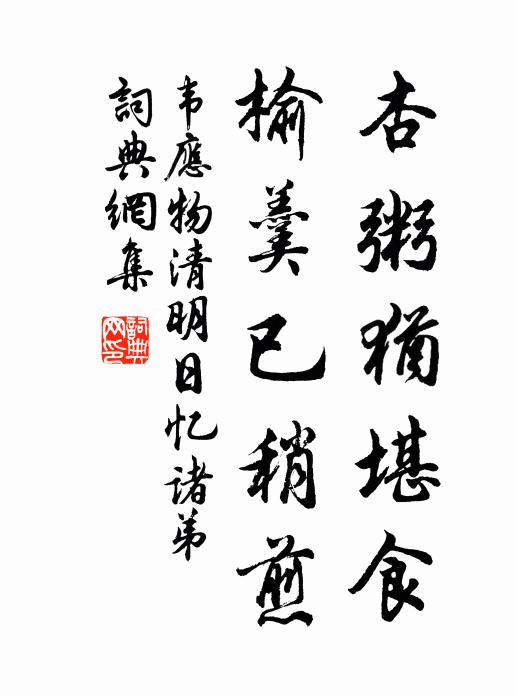 杏粥猶堪食
榆羹已稍煎
韦應物清明日忆諸弟
詞典網集
詞典
网印